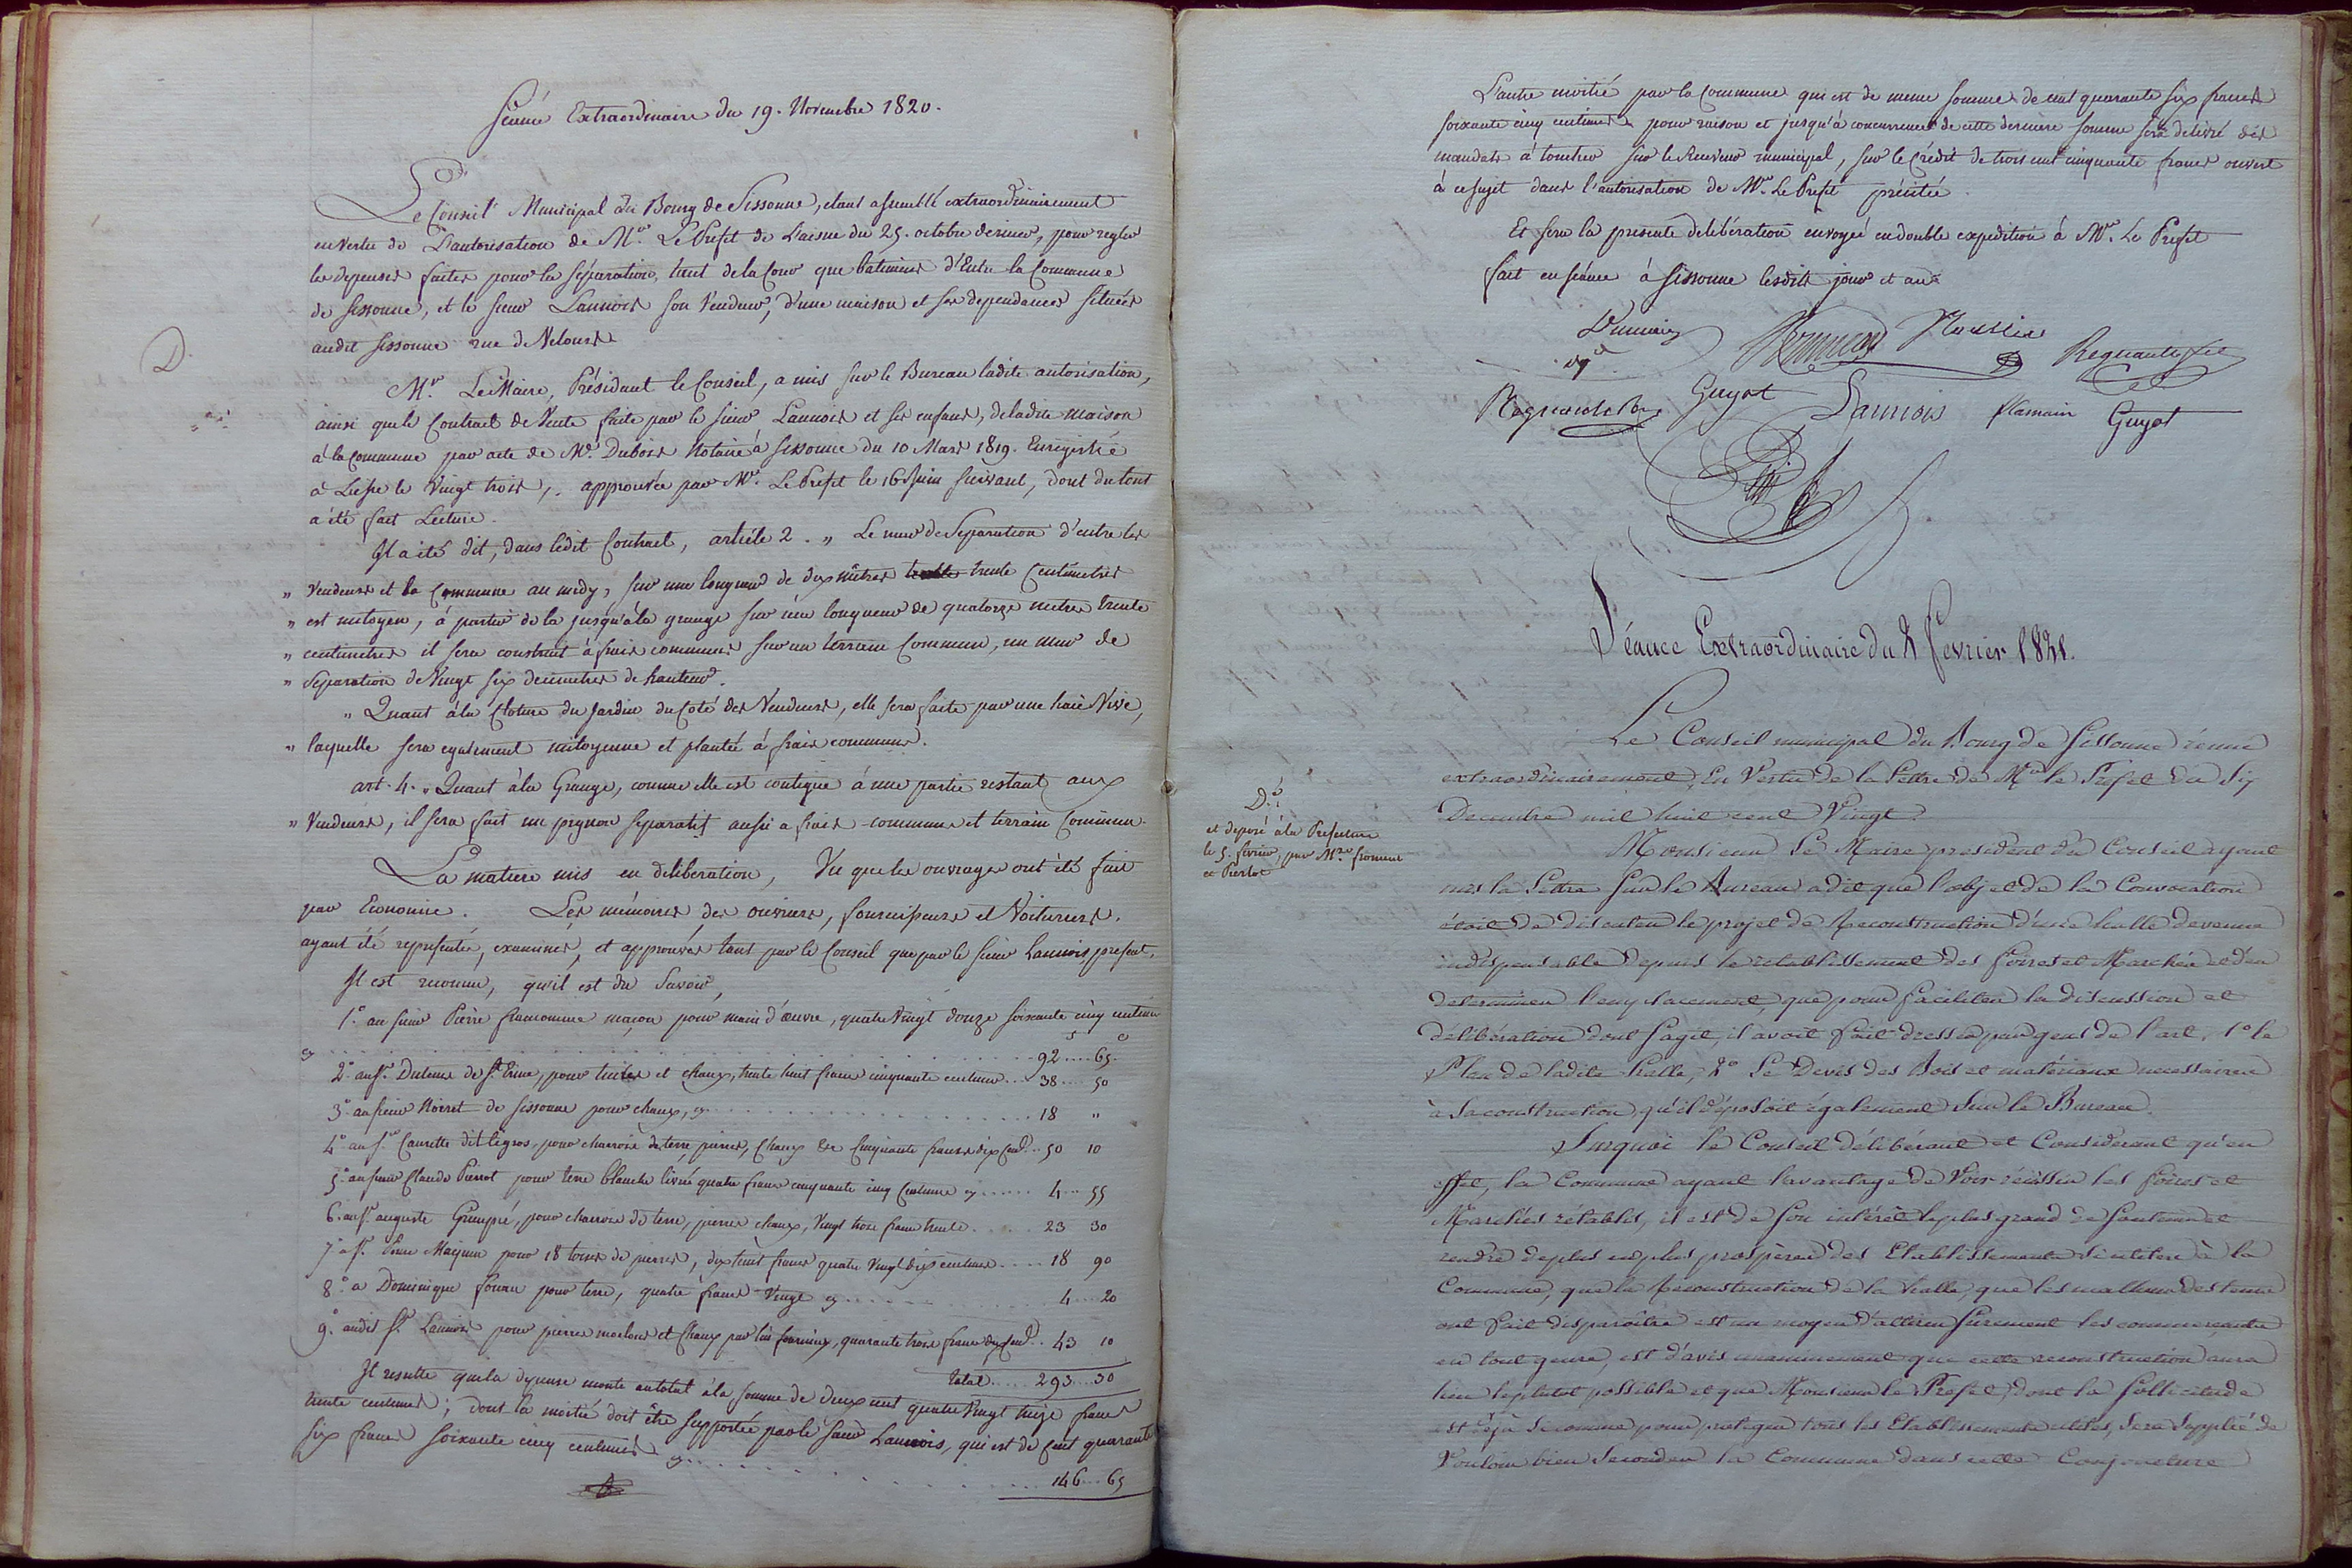 Séance Extraordinaire du 19. Novembre 1820.
Le Conseil Municipal du Bourg de Sissonne, étant assemblé extraordinairement
en vertu de L'autorisation de Mr. Le Préfet de L'aisne du 25. octobre dernier, pour regler
les depenses faites pour la séparation, tant de la Cour que batimens d'Entre la Commune
de Sissonne, et le sieur Lannois son Vendeur, d'une maison et ses dependances situées
audit Sissonne rue de Velours
D.
Mr. Le Maire, Présidant le Conseil, a mis sur le Bureau ladite autorisation,
ainsi que le Contract de Vente faite par le sieur Lannois et ses enfans, de ladite maison
à la Commune par acte de Me. Dubois Notaire à Sissonne du 10 Mars 1819. Enregistré
à Liesse le Vingt trois, approuvée par Mr. Le Préfet le 16 Juin suivant, dont du tout
a été fait Lecture.
Il a été dit, dans ledit Contract, article 2. " Le mur de Séparation d'entre les
" Vendeurs et la Commune au midy, sur une longueur de dix mètres trente Centimetres
" est mitoyen, à partir de la jusqu'à la grange sur une longueur de quatorze metres trente
" centimetres il sera construit à frais communs sur un terrain Commun, un mur de
" Séparation de Vingt six decimetres de hauteur.
" Quant à la Cloture du Jardin du Coté des Vendeurs, elle sera faite par une haie Vive,
" laquelle sera egalement mitoyenne et plantée à frais communs.
art. 4. " Quant à la Grange, comme elle est contigue à une partie restant aux
" Vendeurs, il sera fait un pignon separatif aussi a frais communs et terrain Commun.
La matiere mis en deliberation, Vu que les ouvrages ont été fait
par Economie. Les mémoires des ouvriers, fournisseurs et Voituriers,
ayant été representés, examinés, et approuvés tant par le Conseil que par le sieur Lannois present,
Il est reconnu, qu'il est du Savoir,
1.° au sieur Pierre francomme maçon pour main d'œuvre, quatre Vingt douze soixante cinq centimes
cy 92 65
2.° au Sr. Dutems de St. Erme, pour tuiles et chaux, trente huit francs cinquante centimes 38 50
3.° au sieur Noiret de Sissonne pour chaux, cy 18 "
4.° au Sr. Caurette dit Legros, pour charrois de terre, pierres, Chaux &c Cinquante francs dix Cmes 50 10
5.° au sieur Claude Pierrot pour terre blanche livrée quatre francs cinquante cinq Centimes cy 4 55
6.° au Sr. auguste Grimpré, pour charrois de terre, pierres chaux, Vingt trois francs trente 23 30
7.° a Sr. Pierre Maquin pour 18 toises de pierres, dix huit francs quatre Vingt dix centimes 18 90
8.° a Dominique fouan pour terre, quatre francs Vingt cy 4 20
9.° audit Sr. Lannois pour pierres moelons et Chaux par lui fournies, quarante trois francs dix Cmes 43 10
Total 293 30
Il resulte que la depense monte au total à la somme de deux cent quatre Vingt treize francs
trente centimes; dont la moitié doit être supportée par le sieur Lannois, qui est de Cent quarante
six francs soixante cinq centimes cy
146 65
L'autre moitié par la Commune qui est de meme somme de cent quarante six francs
soixante cinq centimes pour raison et jusqu'à concurrence de cette derniere somme sera delivré des
mandats à toucher sur le Receveur municipal, sur le Crédit de trois cent cinquante francs ouvert
à ce sujet dans l'autorisation de Mr. Le Préfet précitée.
Et sera la presente delibération envoyée en double expedition à Mr. Le Prefet
fait en séance à Sissonne lesdits jour et an
Regnault fils
Guyot Lannois Hamain Guyot
Séance Extraordinaire du 2 fevrier 1821.
Le Conseil municipal du Bourg de Sissonne réuni
extraordinairement, En Vertu de la Lettre de Mr. le Préfet du Six
Decembre mil huit cent Vingt.
D.
et deposé à la Prefecture
le 5. fevrier, par Mrs. froment
et Pierlot
Monsieur Le Maire president du Conseil ayant
mis la Lettre sur le Bureau a dit que l'objet de la Convocation
étoit de discuter le projet de Reconstruction d'une halle devenue
indispensable depuis le retablissement des foires et Marchés et d'en
determiner l'emplacement, que pour faciliter la discussion et
délibération dont s'agit, il avoit fait dresser par gens de l'art, 1.° le
Plan de ladite halle, 2.° Le Devis des Bois et matériaux necessaires
à sa construction, qu'il déposoit également sur le Bureau.
Surquoi le Conseil délibérant et Considerant qu'en
effet, la Commune ayant l'avantage de Voir réussir les foires et
Marchés rétablis, il est de son intérêt le plus grand de soutenir et
rendre de plus en plus prospères des Etablissements si utiles à la
Commune, que la Reconstruction de la halle, que les malheurs des tems
ont fait disparaître est un moyen d'attirer surement les commerçants
en tout genre, est d'avis unanimement que cette reconstruction aura
lieu le plutot possible et que Monsieur le Préfet, dont la sollicitude
est déjà si connue pour protéger tous les Etablissements utiles, sera Supplié de
Vouloir bien seconder la Commune dans cette Conjoncture